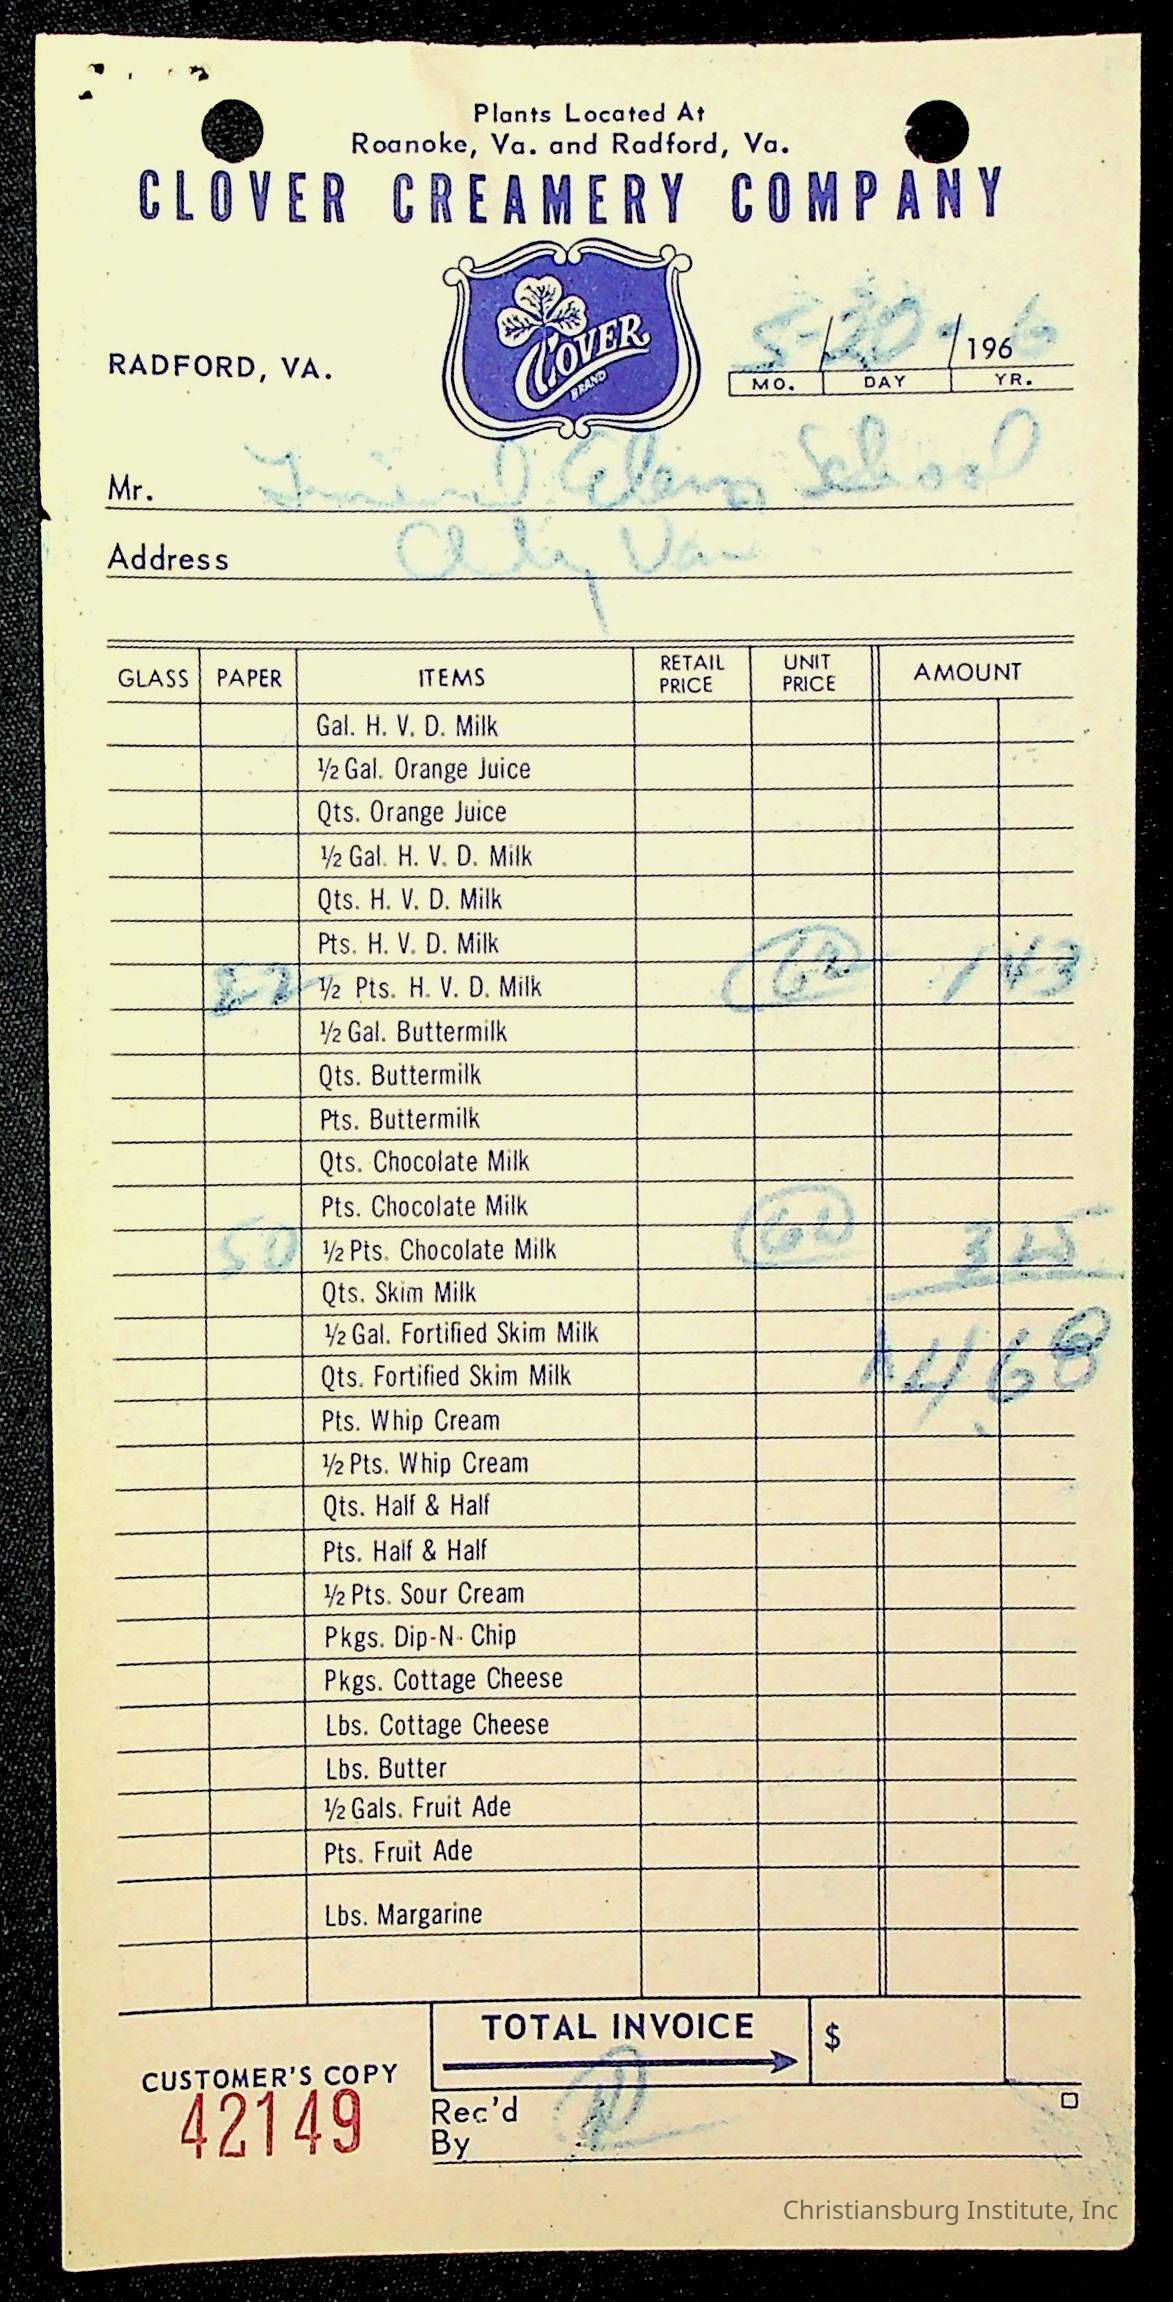 Plants Located At
Roanoke, Va. and Radford, Va.
CLOVER CREAMERY COMPANY
CLOVER
BRAND
RADFORD, VA.
5-20- 196 6
MO. DAY YR.
Mr. Elem School
Address Va
GLASS PAPER ITEMS RETAIL PRICE UNIT PRICE AMOUNT
Gal. H. V. D. Milk
½ Gal. Orange Juice
Qts. Orange Juice
½ Gal. H. V. D. Milk
Qts. H. V. D. Milk
Pts. H. V. D. Milk
22 ½ Pts. H. V. D. Milk 1 43
½ Gal. Buttermilk
Qts. Buttermilk
Pts. Buttermilk
Qts. Chocolate Milk
Pts. Chocolate Milk
50 ½ Pts. Chocolate Milk 3 25
Qts. Skim Milk
½ Gal. Fortified Skim Milk 4 68
Qts. Fortified Skim Milk
Pts. Whip Cream
½ Pts. Whip Cream
Qts. Half & Half
Pts. Half & Half
½ Pts. Sour Cream
Pkgs. Dip-N-Chip
Pkgs. Cottage Cheese
Lbs. Cottage Cheese
Lbs. Butter
½ Gals. Fruit Ade
Pts. Fruit Ade
Lbs. Margarine
TOTAL INVOICE $
CUSTOMER'S COPY
42149
Rec'd
By
Christiansburg Institute, Inc